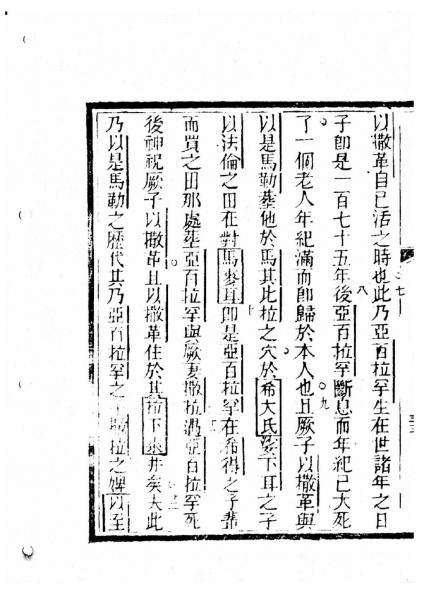 以撒革自己活之時也此乃亞百拉罕生在世諸年之日
子卽是一百七十五年後亞百拉罕斷息而年紀已大死
了一個老人年紀滿而卽歸於本人也且厥子以撒革與
以是馬勒塟他於馬其比拉之穴於希大氏娶下耳之子
以法倫之田在對馬麥耳卽是亞百拉罕在希得之子輩
而買之田那處塟亞百拉罕與厥妻撒拉遇亞百拉罕死
後神祝厥子以撒革且以撒革住於其拉下來井矣夫此
乃以是馬勒之歷代其乃亞百拉罕之子撒拉之婢以至
七
八
九
十